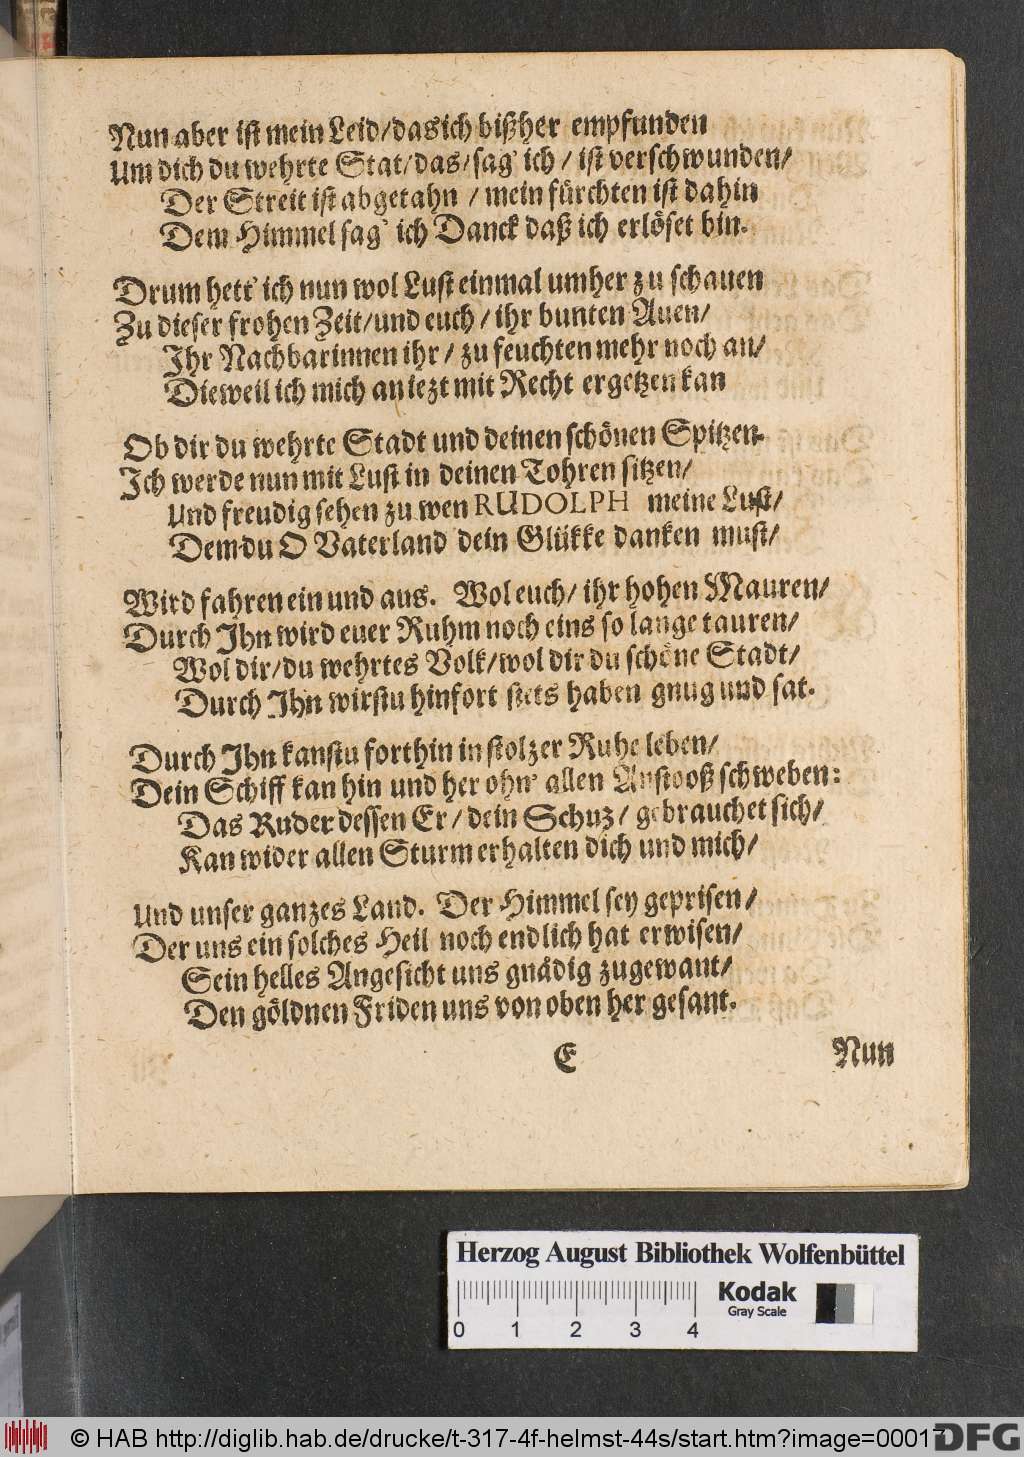 Nun aber ist mein Leid/das ich bißher empfunden
Um dich du wehrte Stat/das/sag' ich/ist verschwunden/
Der Streit ist abgetahn/mein fürchten ist dahin
Dem Himmel sag' ich Danck daß ich erlöset bin.
Drum hett' ich nun wol Lust einmal umher zu schauen
Zu dieser frohen Zeit/und euch/ihr bunten Auen/
Ihr Nachbarinnen ihr/zu feuchten mehr noch an/
Dieweil ich mich an iezt mit Recht ergetzen kan
Ob dir du wehrte Stadt und deinen schönen Spitzen.
Ich werde nun mit Lust in deinen Tohren sitzen/
Und freudig sehen zu wen RUDOLPH meine Lust/
Dem du O Vaterland dein Glükke danken must/
Wird fahren ein und aus. Wol euch/ihr hohen Mauren/
Durch Ihn wird euer Ruhm noch eins so lange tauren/
Wol dir/du wehrtes Volk/wol dir du schöne Stadt/
Durch Ihn wirstu hinfort stets haben gnug und sat.
Durch Ihn kanstu forthin in stolzer Ruhe leben/
Dein Schiff kan hin und her ohn' allen Anstooß schweben:
Das Ruder dessen Er/dein Schuz/gebrauchet sich/
Kan wider allen Sturm erhalten dich und mich/
Und unser ganzes Land. Der Himmel sey geprisen/
Der uns ein solches Heil noch endlich hat erwisen/
Sein helles Angesicht uns gnädig zugewant/
Den göldnen Friden uns von oben her gesant.
E Nun
Herzog August Bibliothek Wolfenbüttel
Kodak
Gray Scale
0 1 2 3 4
© HAB http://diglib.hab.de/drucke/t-317-4f-helmst-44s/start.htm?image=00017
DFG